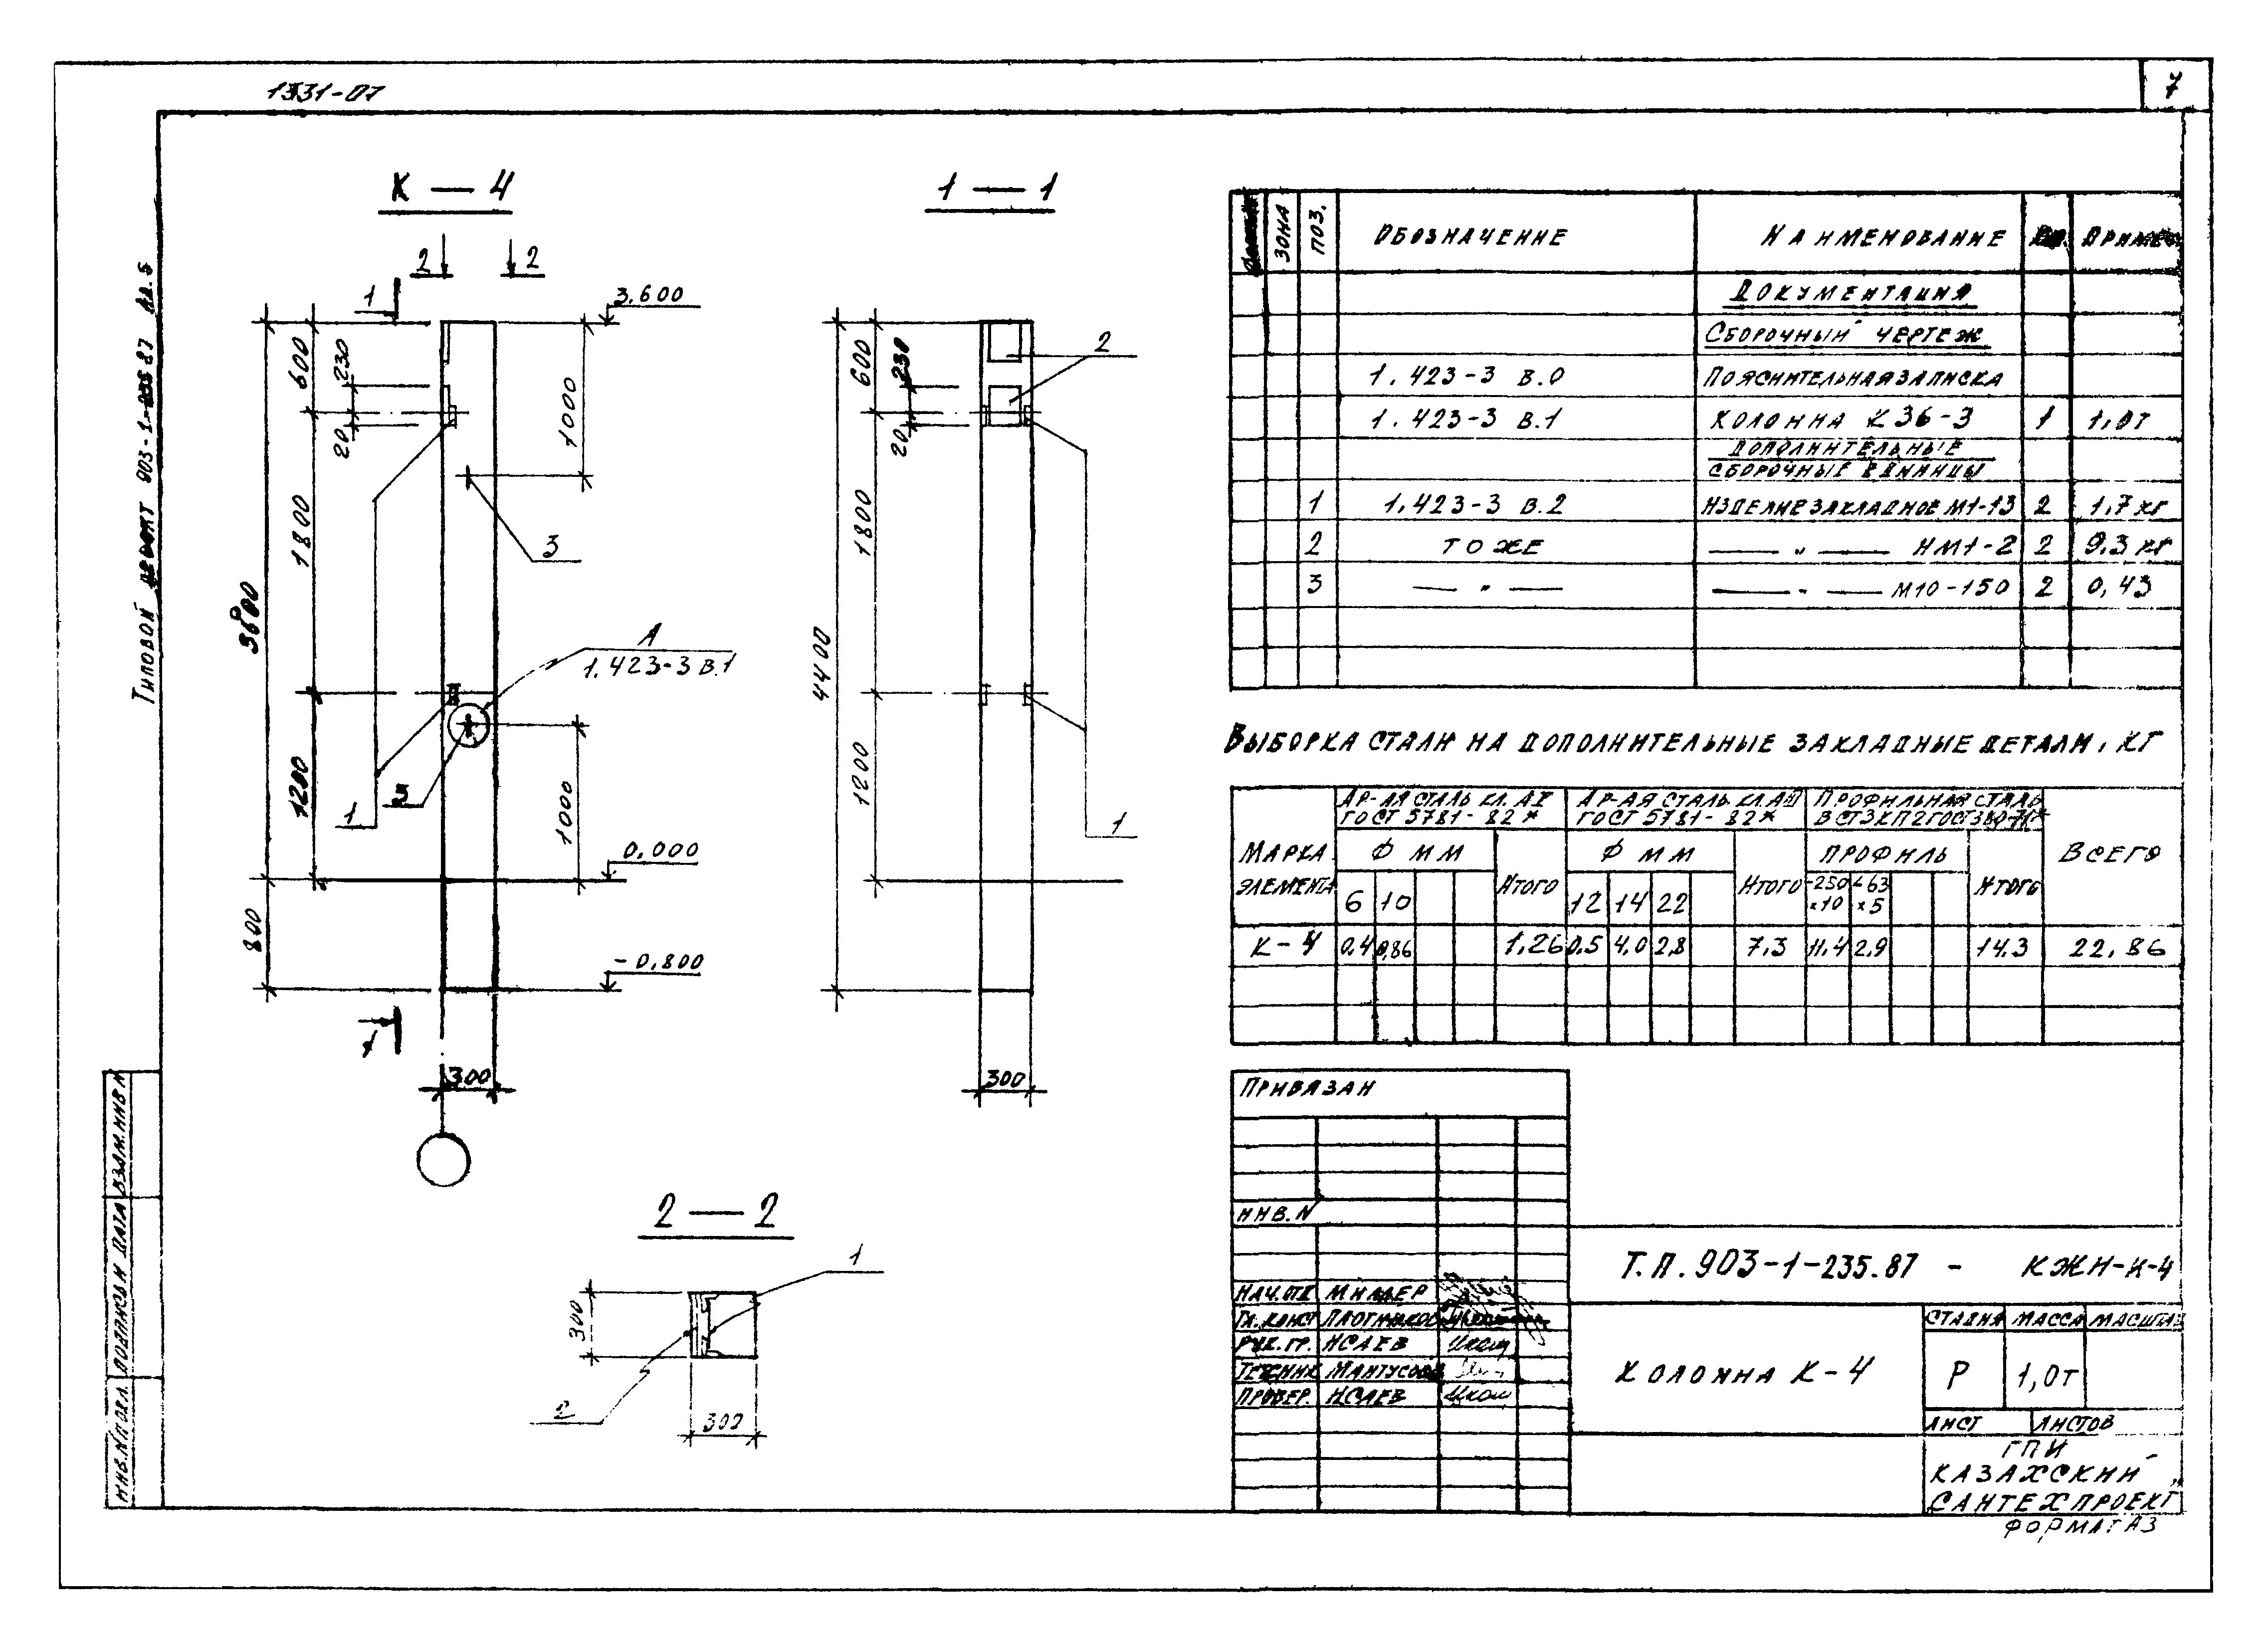 1331-07
7
Типовой проект 903-1-235.87 Ал.5
К — 4
2 2
1
3,600
600
230
20
1000
1800
3
3600
А
1.423-3 В.1
1200
3
1
1000
0,000
800
-0,800
1
300
1 — 1
600
230
20
2
1800
4400
1200
1
300
2 — 2
1
300
2
300
ЗОНА ПОЗ. ОБОЗНАЧЕНИЕ НАИМЕНОВАНИЕ ПРИМЕЧ
ДОКУМЕНТАЦИЯ
СБОРОЧНЫЙ ЧЕРТЕЖ
1.423-3 В.0 ПОЯСНИТЕЛЬНАЯ ЗАПИСКА
1.423-3 В.1 КОЛОННА К36-3 1 1,0т
ДОПОЛНИТЕЛЬНЫЕ
СБОРОЧНЫЕ ЕДИНИЦЫ
1 1.423-3 В.2 ИЗДЕЛИЕ ЗАКЛАДНОЕ М1-13 2 1,7 кг
2 ТО ЖЕ — „ — НМ1-2 2 9,3 кг
3 — „ — — „ — М10-150 2 0,43
ВЫБОРКА СТАЛИ НА ДОПОЛНИТЕЛЬНЫЕ ЗАКЛАДНЫЕ ДЕТАЛИ, КГ
МАРКА ЭЛЕМЕНТА
АР-АЯ СТАЛЬ КЛ. АI
ГОСТ 5781-82*
АР-АЯ СТАЛЬ КЛ. АIII
ГОСТ 5781-82*
ПРОФИЛЬНАЯ СТАЛЬ
ВСТ3КП2 ГОСТ 380-71*
ВСЕГО
Ф ММ ИТОГО Ф ММ ИТОГО ПРОФИЛЬ ИТОГО
6 10 12 14 22 -250×10 ∠63×5
К-4 0,4 0,86 1,26 0,5 4,0 2,8 7,3 11,4 2,9 14,3 22,86
ПРИВЯЗАН
ИНВ.N
Т.П. 903-1-235.87 - КЖИ-К-4
НАЧ.ОТД МИЛЛЕР
ГЛ.КОНСТ ПЛОТНИКОВ
РУК.ГР. ИСАЕВ
ТЕХНИК МАНТУСОВ
ПРОВЕР. ИСАЕВ
КОЛОННА К-4
СТАДИЯ МАССА МАСШТАБ
Р 1,0т
ЛИСТ ЛИСТОВ
ГПИ
КАЗАХСКИЙ
САНТЕХПРОЕКТ
ФОРМАТ А3
ИНВ.N ПОДЛ. ПОДПИСЬ И ДАТА ВЗАМ.ИНВ.N